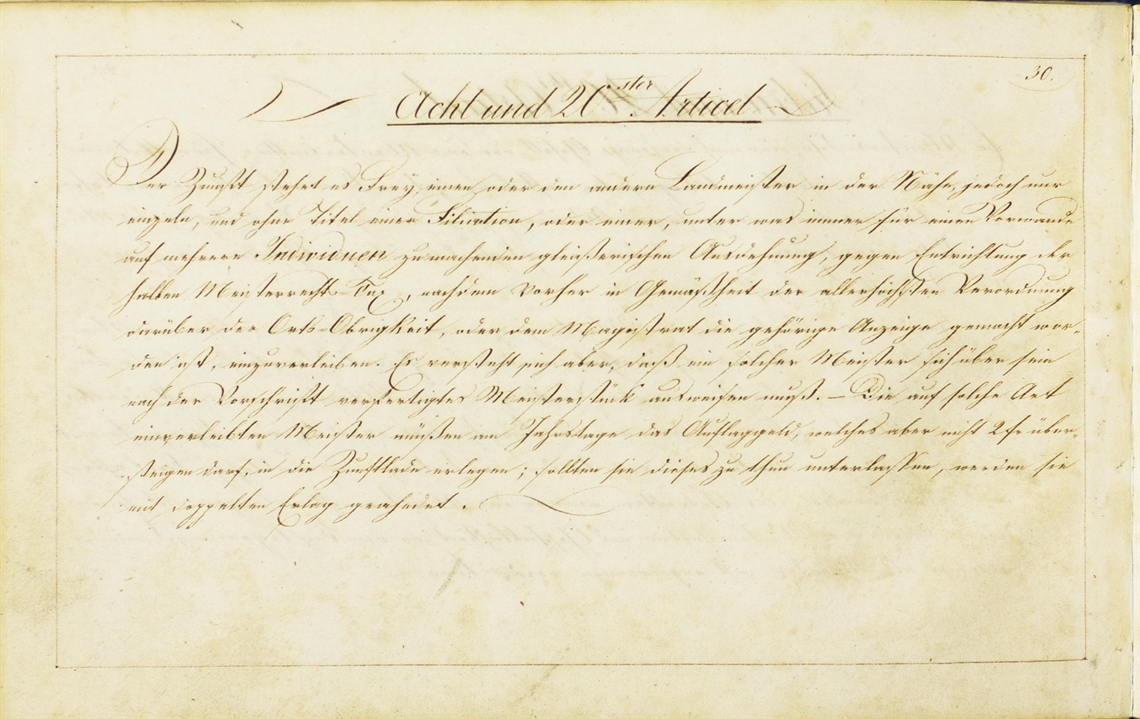 30.
Acht und 20ster Articel
Der Zunft stehet es Frey, einen oder den andern Landmeister in der Nähe, jedoch nur
einzeln, und ohne Titel einer Filiation, oder einer, unter was immer für einen Vorwande
auf mehrere Individuen zu machenden gleißnerischen Ausdehnung, gegen Entrichtung der
halben Meisterrechts-Tax, nachdem vorher in Gemäßheit der allerhöchsten Verordnung
darüber der Orts-Obrigkeit, oder dem Magistrat die gehörige Anzeige gemacht wor-
den ist, einzuverleiben. Es versteht sich aber, daß ein solcher Meister sich über sein
nach der Vorschrift verfertigtes Meisterstück ausweisen muß. – Die auf solche Art
einverleibten Meister müßen am Jahrstage das Auflaggeld, welches aber nicht 2 fr über-
steigen darf, in die Zunftlade erlegen; sollten sie dieses zu thun unterlassen, werden sie
mit doppelten Erlag geahndet.